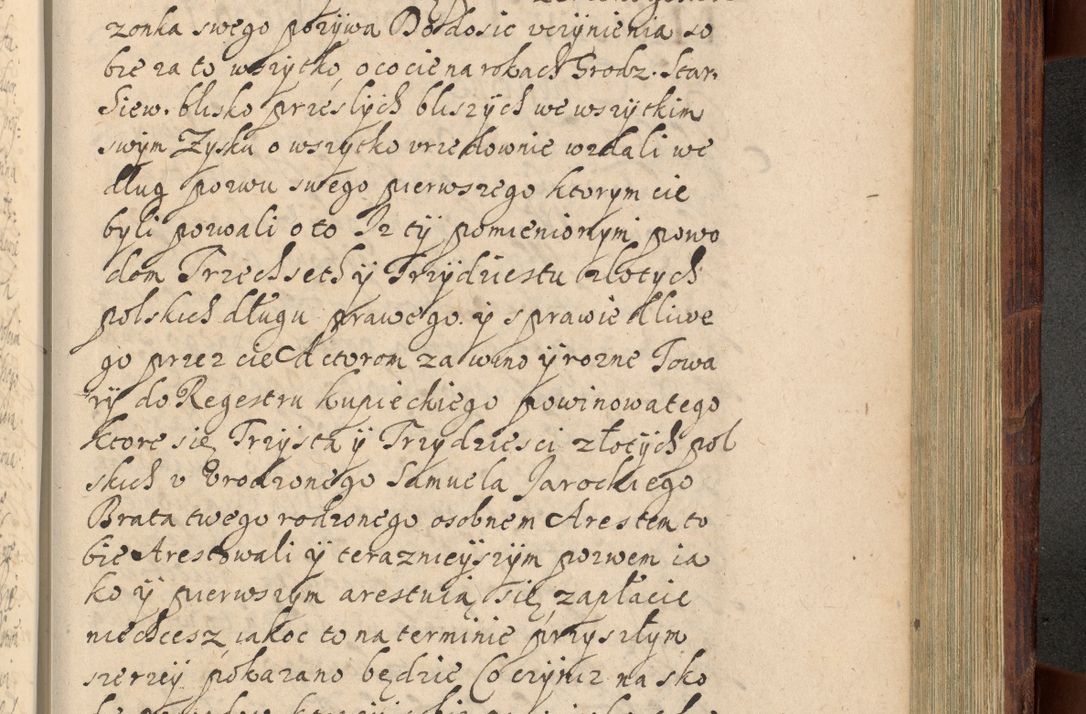 zonka swego pozywa Do dosic vczynienia so
bie za to wszytko, o co cie na rokach Grodz. Star.
Siew. blisko przeslÿch bliszÿch we wszÿtkim
swÿm Zysku o wszytko vrzedownie wzdali we
dług pozwu swego pierwszego ktorym cie
byli pozwali o to Iz tÿ pomienionÿm powo
dom Trzechseth ÿ Trzÿdziestu złotÿch
polskich długu prawego. ÿ sprawiedliwe
go przez cie Actorom za wino ÿ rozne Towa
rÿ do Regestru kupieckiego powinowatego
ktore się Trzÿsta ÿ Trzydziesci złotÿch pol
skich v Vrodzonego Samuela Jarockiego
Brata twego rodzonego osobnem Arestem to
bie Arestowali ÿ teraznieÿszÿm pozwem ia
ko ÿ pierwszym arestuią się, zapłacic
niechcesz, iakoc to na terminie przyszłym
szerzeÿ pokazano będzie Co czÿnisz na sko